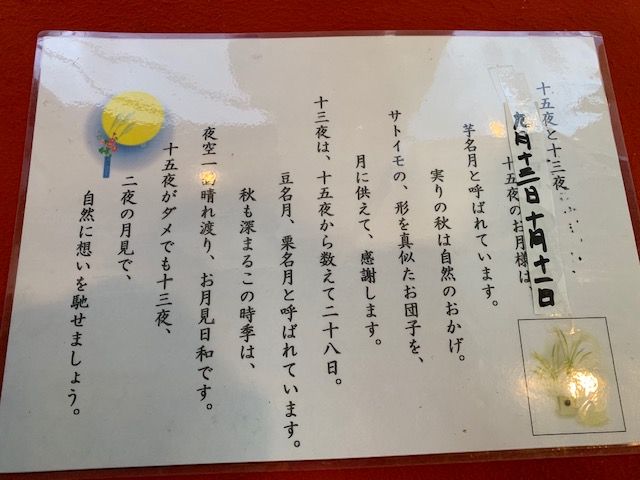 十五夜と十三夜
九月十三日 十月十一日
十五夜のお月様は、
芋名月と呼ばれています。
実りの秋は自然のおかげ。
サトイモの、形を真似たお団子を、
月に供えて、感謝します。
十三夜は、十五夜から数えて二十八日。
豆名月、栗名月と呼ばれています。
秋も深まるこの時季は、
夜空一面晴れ渡り、お月見日和です。
十五夜がダメでも十三夜、
二夜の月見で、
自然に想いを馳せましょう。